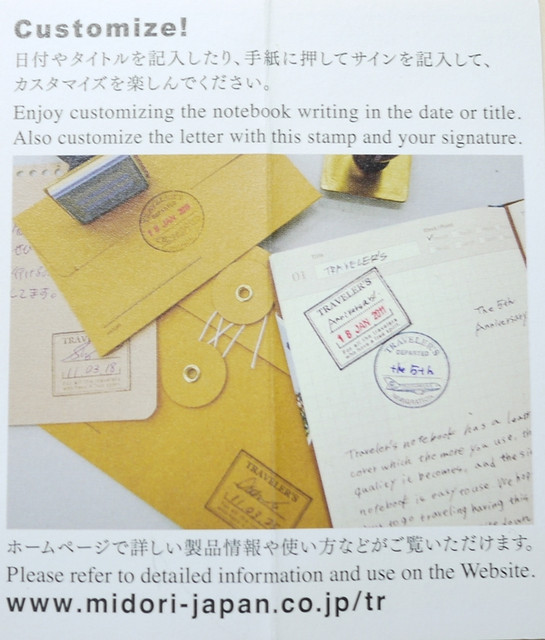 Customize!
日付やタイトルを記入したり、手紙に押してサインを記入して、
カスタマイズを楽しんでください。
Enjoy customizing the notebook writing in the date or title.
Also customize the letter with this stamp and your signature.
TRAVELER'S
18 JAN 2011
01
TRAVELER'S
TRAVELER'S
Anniversary
18 JAN 2011
The 5th
Anniversary
TRAVELER'S
DEPARTED
the 5th
TRAVELER'S
11.03.18
TRAVELER'S
Traveler's notebook has a
cover which the more you use, th
quality it becomes, and the
notebook is easy to use. We
to go traveling having this
ホームページで詳しい製品情報や使い方などがご覧いただけます。
Please refer to detailed information and use on the Website.
www.midori-japan.co.jp/tr